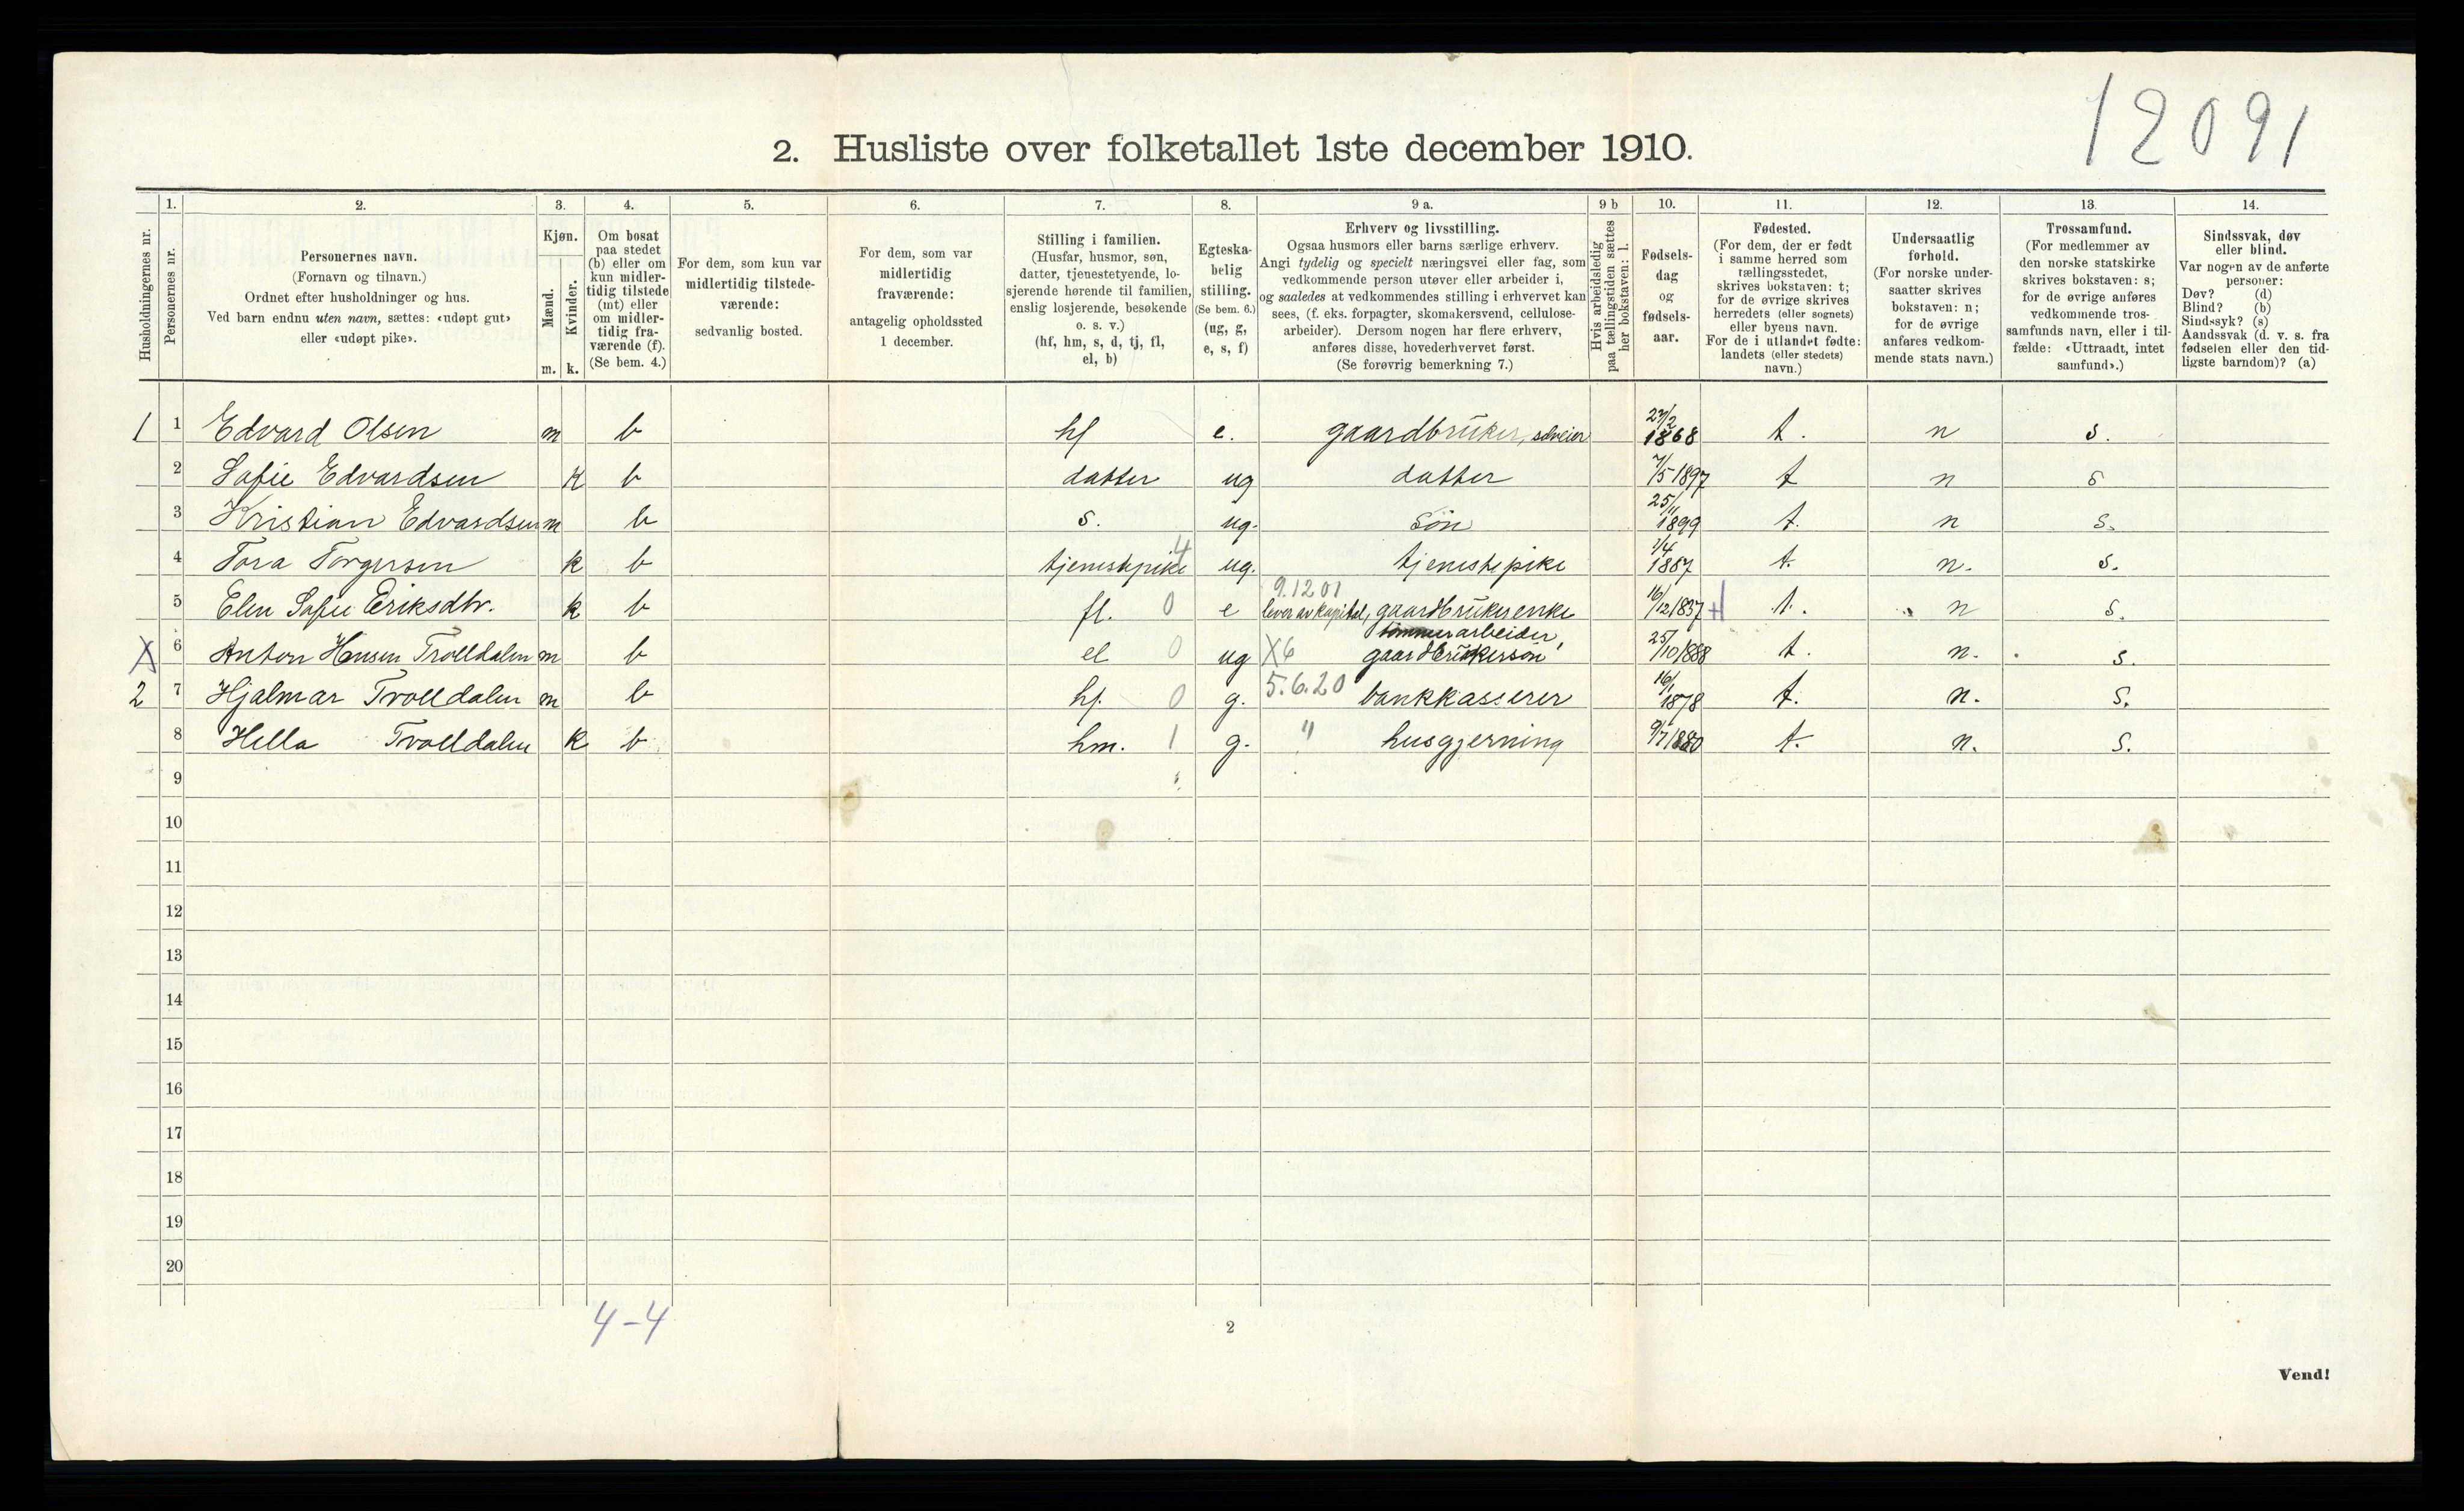 12091
2. Husliste over folketallet 1ste december 1910.
Husholdningernes nr.
1.
Personernes nr.
2.
Personernes navn.
(Fornavn og tilnavn.)
Ordnet efter husholdninger og hus.
Ved barn endnu uten navn, sættes: «udøpt gut»
eller «udøpt pike».
3.
Kjøn.
Mænd.
Kvinder.
m. k.
4.
Om bosat
paa stedet
(b) eller om
kun midler-
tidig tilstede
(mt) eller
om midler-
tidig fra-
værende (f).
(Se bem. 4.)
5.
For dem, som kun var
midlertidig tilstede-
værende:
sedvanlig bosted.
6.
For dem, som var
midlertidig
fraværende:
antagelig opholdssted
1 december.
7.
Stilling i familien.
(Husfar, husmor, søn,
datter, tjenestetyende, lo-
sjerende hørende til familien,
enslig losjerende, besøkende
o. s. v.)
(hf, hm, s, d, tj, fl,
el, b)
8.
Egteska-
belig
stilling.
(Se bem. 6.)
(ug, g,
e, s, f)
9 a.
Erhverv og livsstilling.
Ogsaa husmors eller barns særlige erhverv.
Angi tydelig og specielt næringsvei eller fag, som
vedkommende person utøver eller arbeider i,
og saaledes at vedkommendes stilling i erhvervet kan
sees, (f. eks. forpagter, skomakersvend, cellulose-
arbeider). Dersom nogen har flere erhverv,
anføres disse, hovederhvervet først.
(Se forøvrig bemerkning 7.)
9 b
Hvis arbeidsledig
paa tællingstiden sættes
her bokstaven: l.
10.
Fødsels-
dag
og
fødsels-
aar.
11.
Fødested.
(For dem, der er født
i samme herred som
tællingsstedet,
skrives bokstaven: t;
for de øvrige skrives
herredets (eller sognets)
eller byens navn.
For de i utlandet fødte:
landets (eller stedets)
navn.)
12.
Undersaatlig
forhold.
(For norske under-
saatter skrives
bokstaven: n;
for de øvrige
anføres vedkom-
mende stats navn.)
13.
Trossamfund.
(For medlemmer av
den norske statskirke
skrives bokstaven: s;
for de øvrige anføres
vedkommende tros-
samfunds navn, eller i til-
fælde: «Uttraadt, intet
samfund».)
14.
Sindssvak, døv
eller blind.
Var nogen av de anførte
personer:
Døv? (d)
Blind? (b)
Sindssyk? (s)
Aandssvak (d. v. s. fra
fødselen eller den tid-
ligste barndom)? (a)
1 1 Edvard Olsen m b hf e. gaardbruker, selveier 27/2 1868 t. n s.
2 Sofie Edvardsen k b datter ug datter 7/5 1897 t n s
3 Kristian Edvardsen m b s. ug. søn 25/11 1899 t. n s.
4 Tora Torgersen k b tjenestepike 4 ug. tjenestepike 1/4 1887 t. n. s.
5 Elen Sofie Eriksdtr. k b fl. 0 e 9.12 01 lever av kapital, gaardbrukerenke 16/12 1837 t. n s.
X 6 Anton Hansen Trolldalen m b el 0 ug X6 tømmerarbeider, gaardbrukersøn 25/10 1888 t. n. s.
2 7 Hjalmar Trolldalen m b hf. 0 g. 5.6.20 bankkasserer 16/1 1878 t. n. s.
8 Hella Trolldalen k b hm. 1 g. " husgjerning 9/7 1880 t. n. s.
9
10
11
12
13
14
15
16
17
18
19
20
4-4
2
Vend!